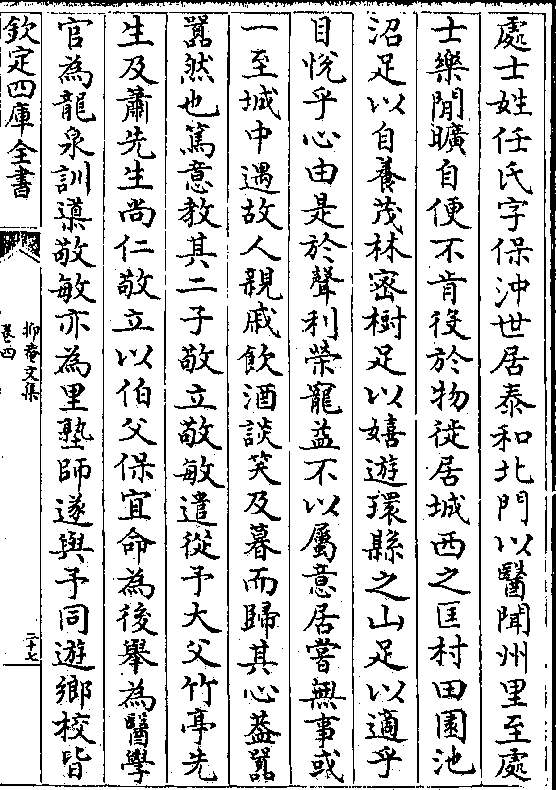 處士姓任氏字保沖世居泰和北門以醫聞州里至處
士樂閒曠自便不肯役於物徙居城西之匡村田園池
沼足以自養茂林宻樹足以嬉遊環縣之山足以適乎
目悅乎心由是於聲利榮寵益不以屬意居嘗無事或
一至城中遇故人親戚飲酒談笑及暮而歸其心葢嚣
嚣然也篤意教其二子敬立敬敏遣從予大父竹亭先
生及蕭先生尚仁敬立以伯父保宜命為後舉為醫學
官為龍泉訓導敬敏亦為里塾師遂與予同遊鄉校皆
欽定四庫全書
抑菴文集
卷四
二十七